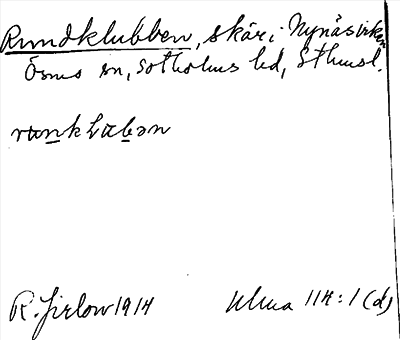 Rundklubben, skär i Nynäsviken
Ösmo sn, Sotholms hd, Sthmsl.
R. Jirlow 1914 Ulma 114:1 (d)